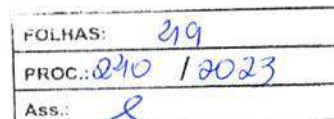 FOLHAS: 219
PROC.: 240 / 2023
Ass.: